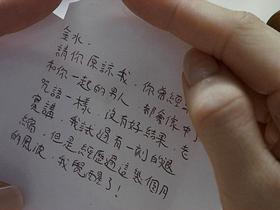 金水，
請你原諒我，你常經
和你一起的男人，都會像中了
咒語一樣，沒有好結果，老
實講，我試過有一刻的退
縮，但是經歷過這幾個月
的風波，我覺悟了！